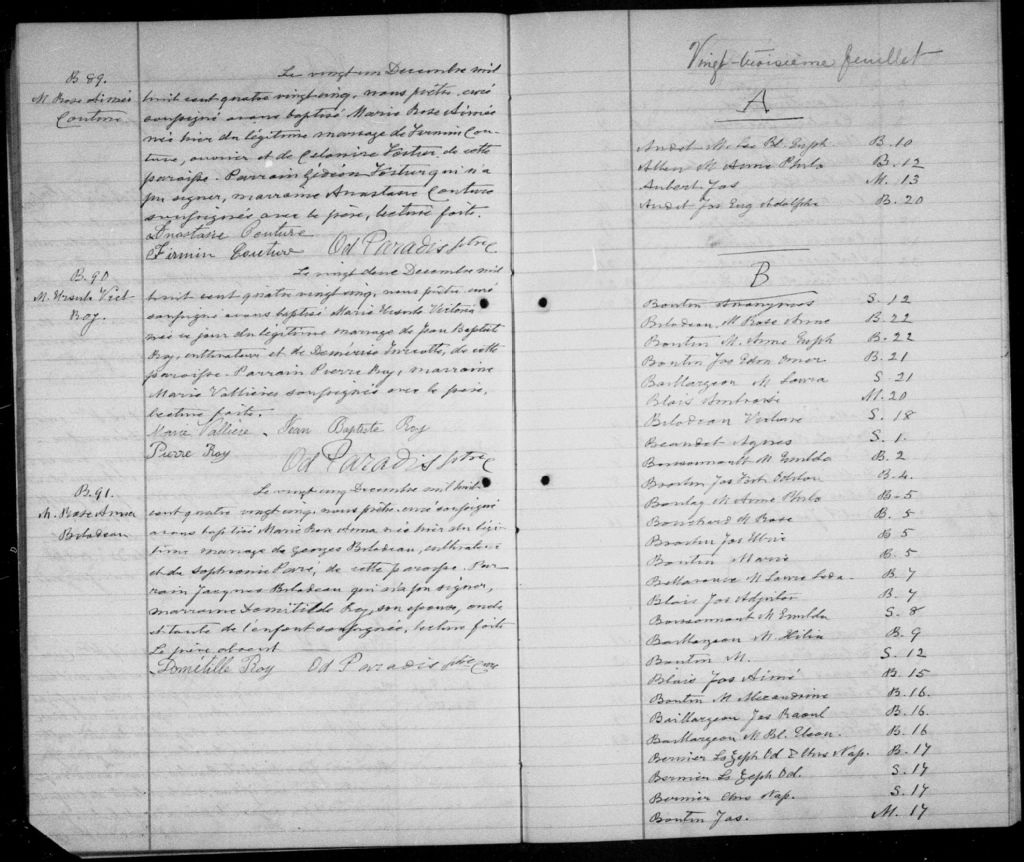 B. 89.
M. Rose Aimée
Couture
Le vingt un Decembre mil
huit cent quatre vingt cinq, nous prêtre curé
soussigné avons baptisé Marie Rose Aimée
née hier du légitime mariage de Firmin Cou-
ture, ouvrier et de Celanire Fortier, de cette
paroisse. Parrain Gédéon Fortier qui n'a
pu signer, marraine Anastasie Couture
soussignés avec le père, lecture faite.
Anastasie Couture
Firmin Couture Od Paradis ptre C
B. 90
M. Ursule Vict
Roy.
Le vingt deux Decembre mil
huit cent quatre vingt cinq, nous prêtre curé
soussigné avons baptisé Marie Ursule Victoria
née ce jour du légitime mariage de Jean Baptiste
Roy, cultivateur et de Démérise Turcotte, de cette
paroisse. Parrain Pierre Roy, marraine
Marie Vallières soussignés avec le père,
lecture faite.
Marie Vallière - Jean Baptiste Roy
Pierre Roy Od Paradis ptre C
B. 91.
M. Rose Anna
Bilodeau
Le vingt cinq Decembre mil huit
cent quatre vingt cinq, nous prêtre curé soussigné
avons baptisé Marie Rose Anna née hier du légi-
time mariage de Georges Bilodeau, cultivateur
et de Sophronie Paré, de cette paroisse. Par-
rain Jacques Bilodeau qui n'a pu signer,
marraine Domitilde Roy, son epouse, oncle
et tante de l'enfant soussignée, lecture faite
Le père absent
Dométille Roy Od Paradis ptre Curé
Vingt-troisième feuillet
A
Audet M. Léa Bl. Euph B. 10
Allen M Anne Philo B. 12
Aubert Jos M. 13
Audet Jos Eug Adolphe B. 20
B
Boutin Anonymos S. 12
Bilodeau, M Rose Anne B. 22
Boutin M. Anne Euph B. 22
Boutin Jos Edou Omer B. 21
Baillargeon M Laura S. 21
Blais Ambroise M. 20
Bilodeau S. 18
Beaudet Agnes S. 1.
Bonsommait M Emilda B. 2
Boutin Jos B. 4.
Boulay M. Anne Philo B. 5
Bouchard M Rose B. 5
Boutin Jos B. 5
Boutin Marie B. 5
Bellavance M Laura B. 7
Blais Jos Adjutor B. 7
Bonsommait M Emilda S. 8
Baillargeon M. B. 9
Boutin M. S. 12
Blais Jos Aimé B. 15
Boutin M Alexandrine B. 16.
Baillargeon Jos Raoul B. 16.
Baillargeon M Bl. B. 16
Bernier Ls Zeph Od & Chs Nap. B. 17
Bernier Ls Zeph Od. S. 17
Bernier Chs Nap. S. 17
Boutin Jos. M. 17